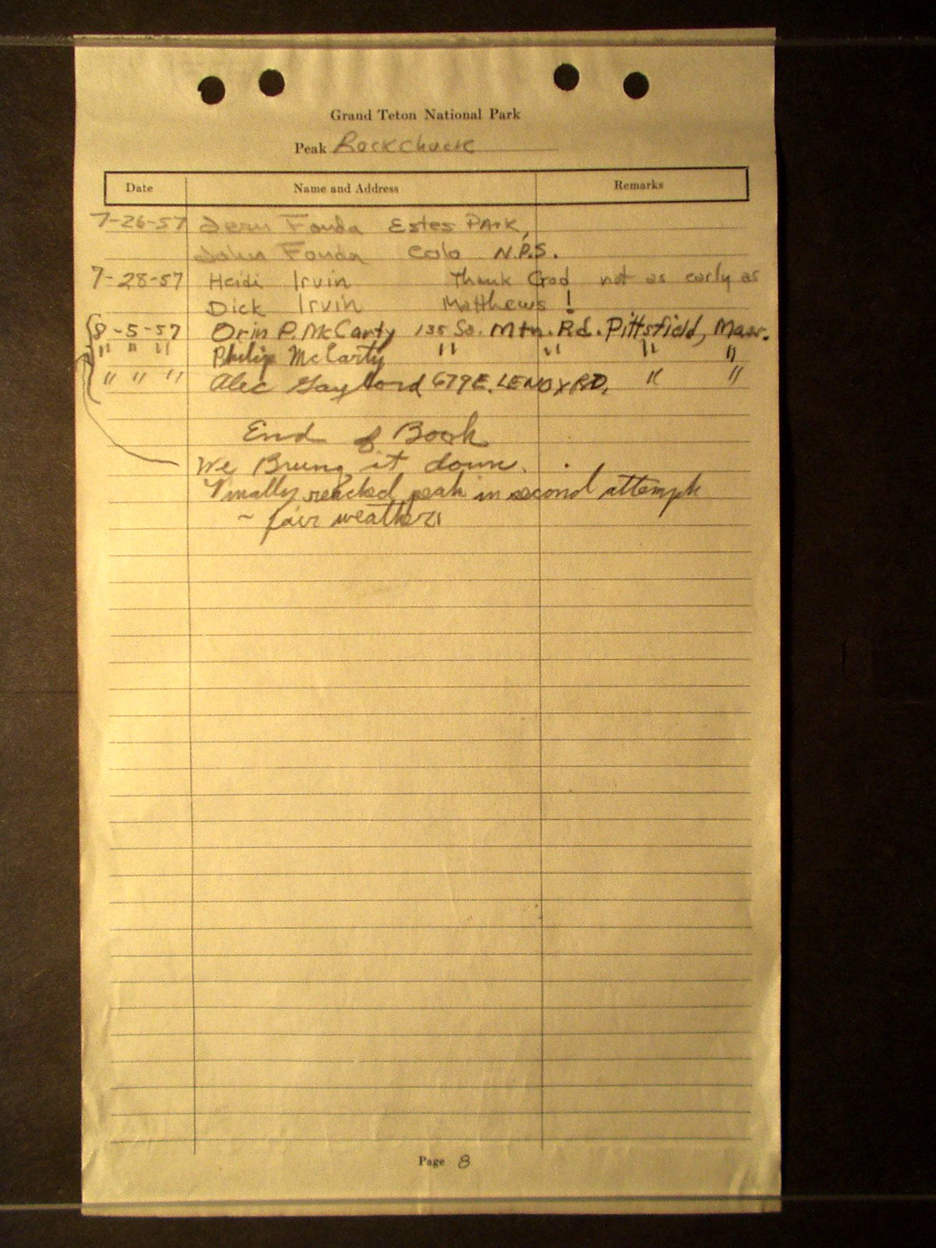 Grand Teton National Park
Peak Rockchuck
Date Name and Address Remarks
7-26-57 Jean Fonda Estes Park,
John Fonda Colo N.P.S.
7-28-57 Heidi Irvin Thank God not as early as
Dick Irvin Matthews!
8-5-57 Orin P. McCarty 135 So. Mtn. Rd. Pittsfield, Mass.
" " " Philip McCarty " " " "
" " " Alec Gaylord 679 E. LENOX RD, " "
End of Book
We Brung it down.
Finally reached peak in second attempt
~ fair weather!
Page 8